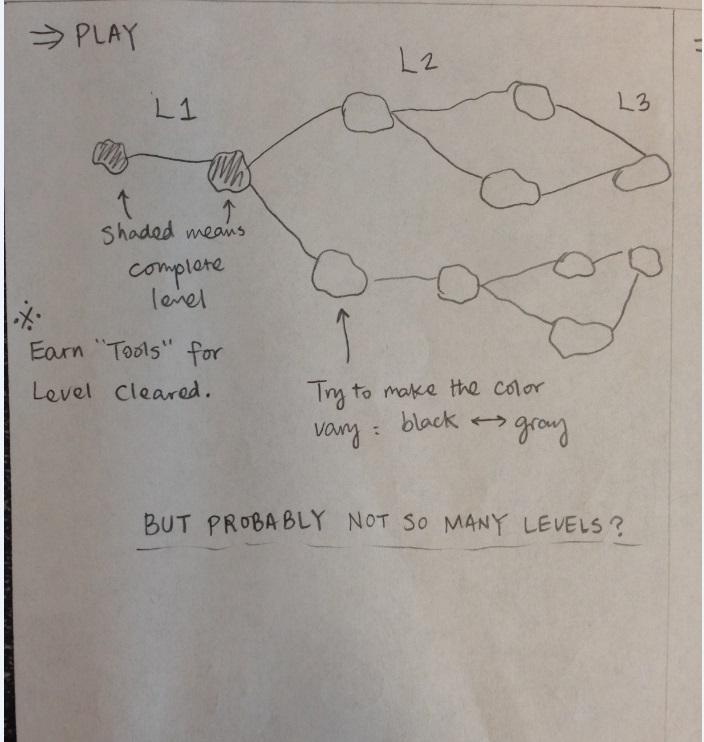 ⇒ PLAY
L1
L2
L3
Shaded means
complete
level
※
Earn "Tools" for
Level Cleared.
Try to make the color
vary : black ↔ gray
BUT PROBABLY NOT SO MANY LEVELS?